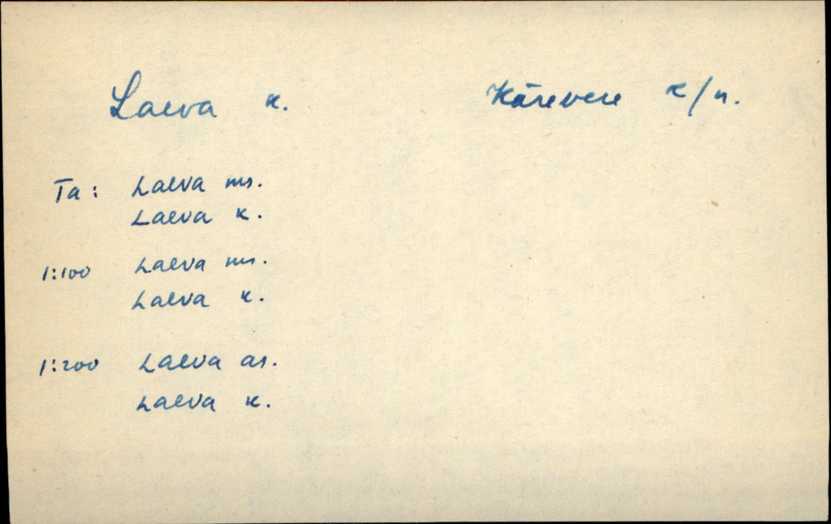 Laeva k. Kärevere k/n.
Ta: Laeva ms.
Laeva k.
1:100 Laeva ms.
Laeva k.
1:200 Laeva as.
Laeva k.